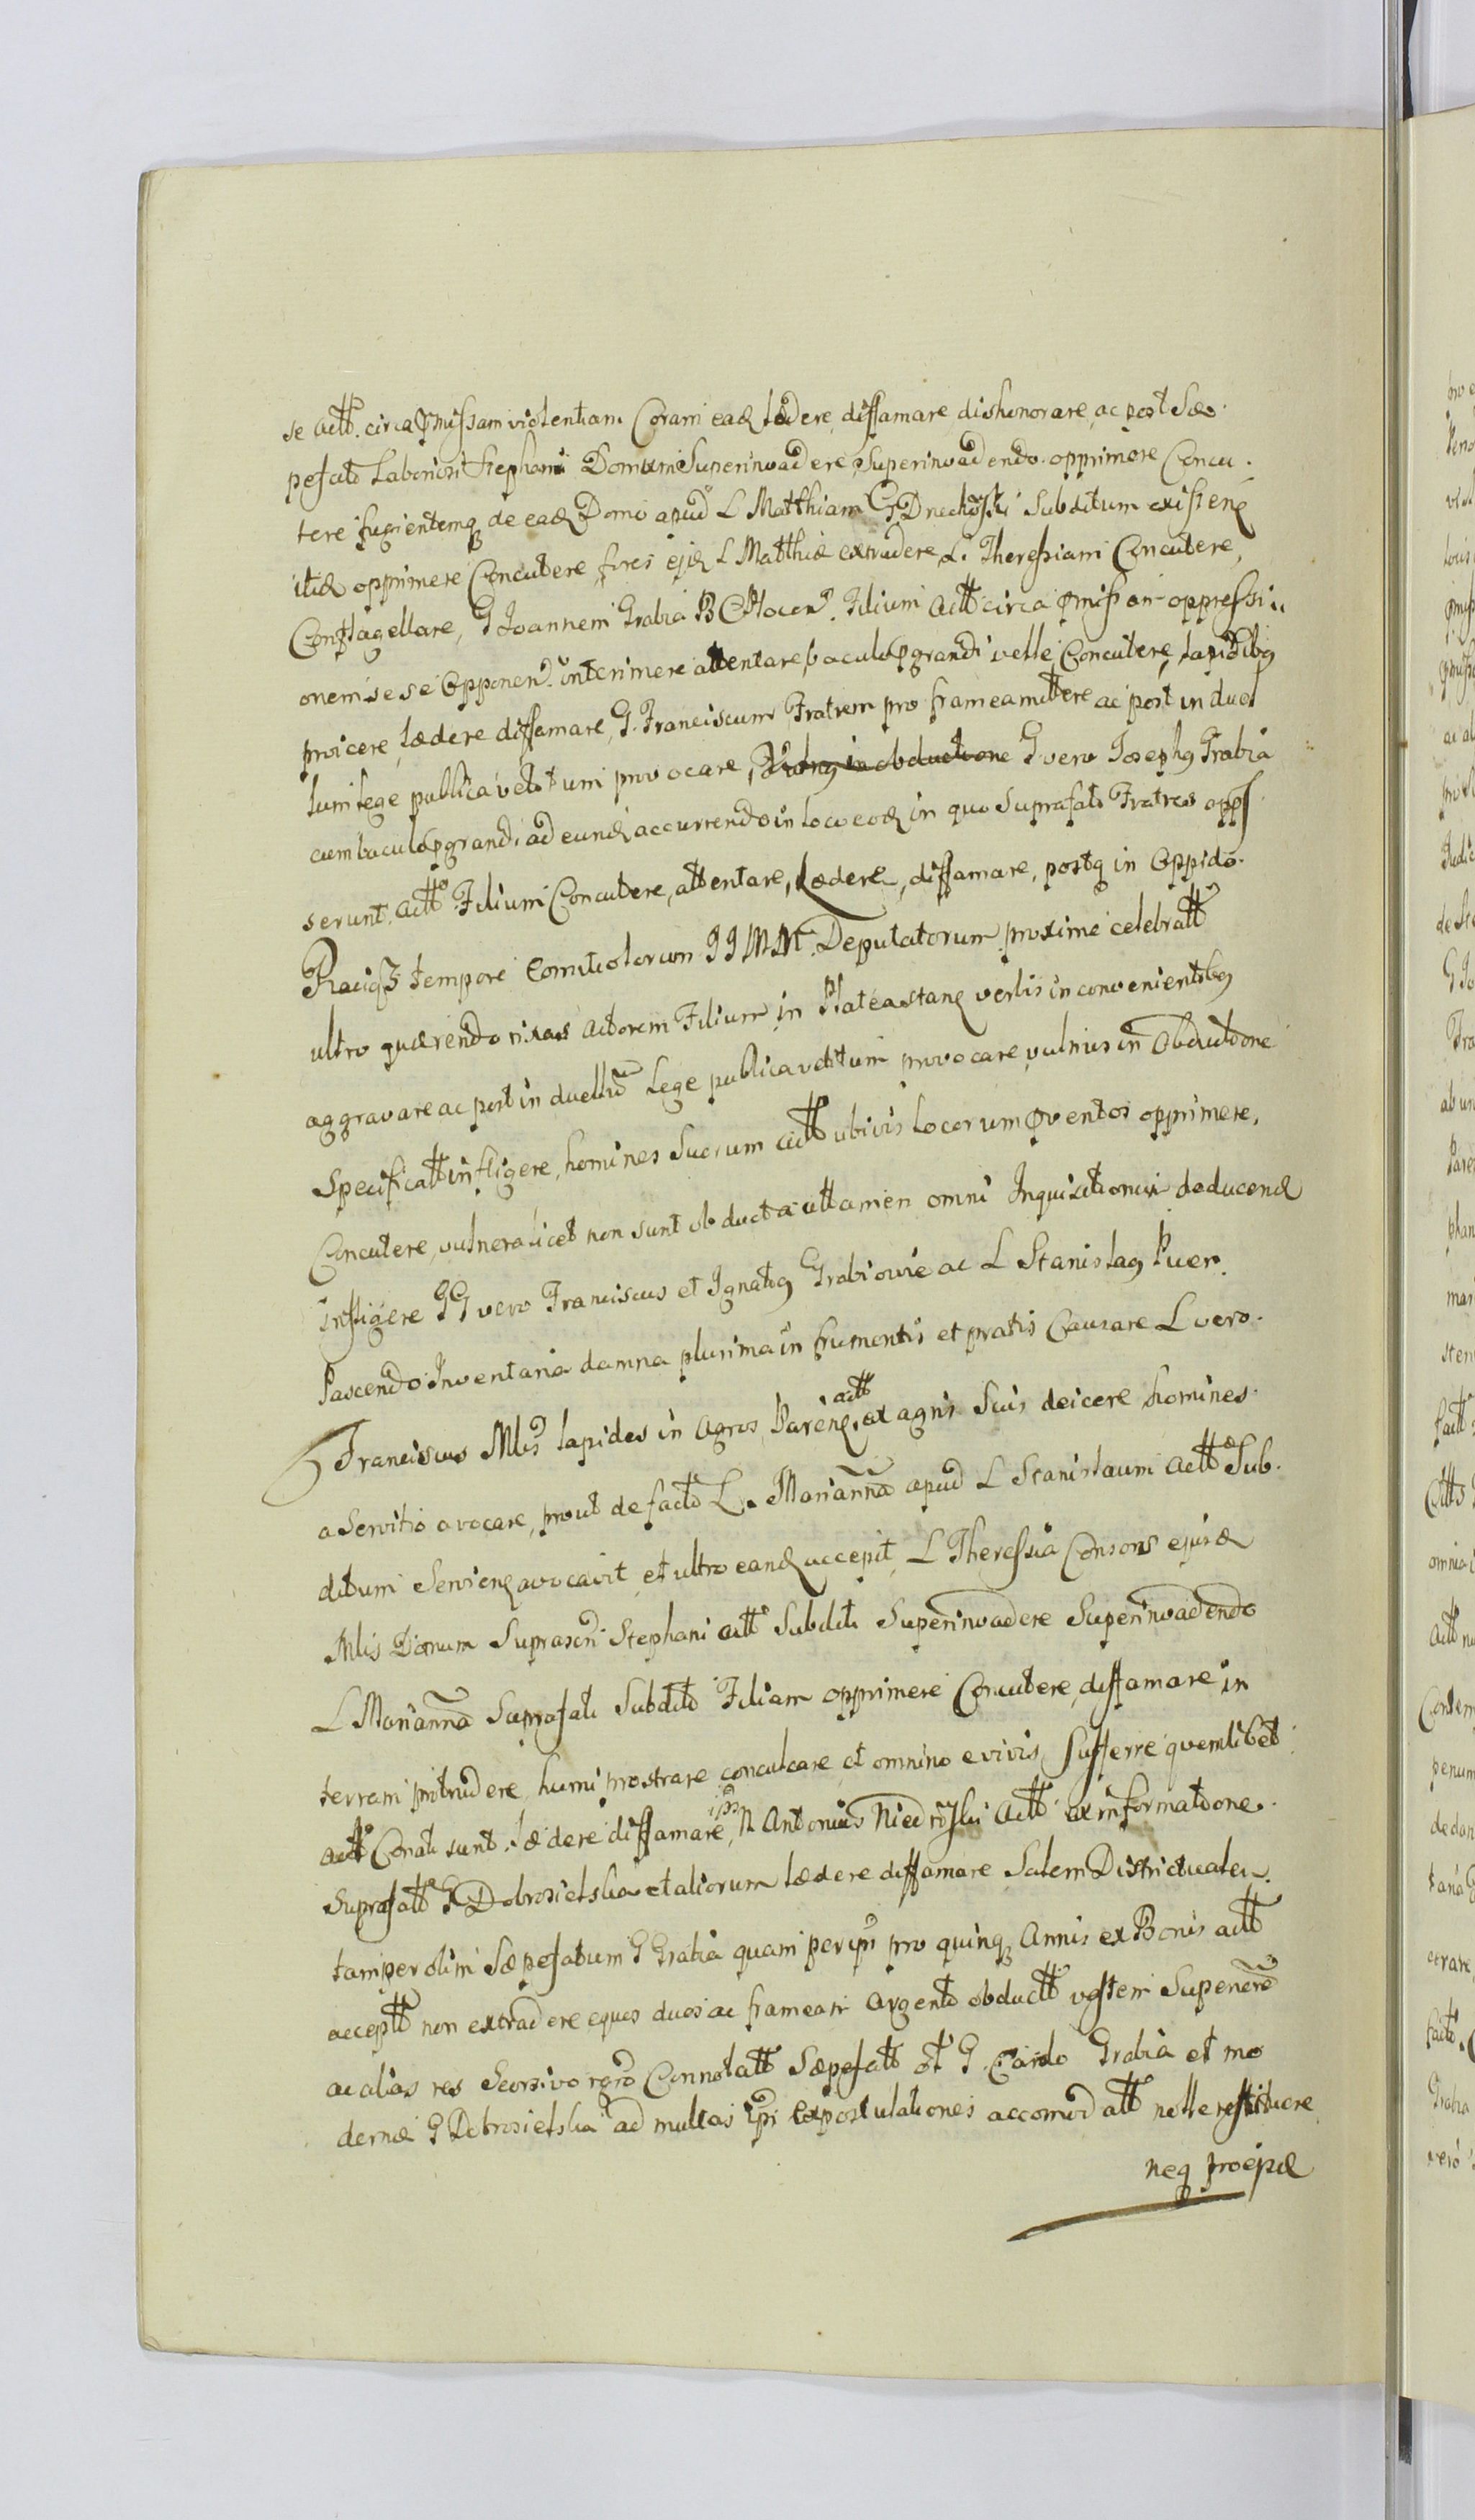 se Actt. circa pmissam violentiam Coram ead lædere, diffamare, dishonorare, ac post Sæ.
pefati Laboriosi Stephani Domum Superinvadere, Superinvadendo opprimere Concu.
tere fugientemq de ead Domo apud L Matthiam G Subditum existen
itid opprimere Concutere fores ejd L Matthiæ extrudere, L. Theressiam Concutere,
Conflagellare, G Joannem Grabia Filium Actt circa pmissam oppressi
onem sese Opponen. interimere attentare, baculo pgrandi velle Concutere, lapidibq
proicere, lædere diffamare, G. Franciscum Fratrem pro framea mittere ac post in duel
lum lege publica vetitum provocare, in obductione G vero Josephq Grabia
cum baculo pgrandi ad eund accurrendo in loco eod in quo Suprafati Fratres opps
serunt. Actt. Filium Concutere, attentare, Lædere, diffamare, postq in Oppido.
Raciąż tempore Comitiolorum JJ MM. Deputatorum proxime celebratt
ultro quærendo rixas Actorem Filium in Platea stan verbis inconvenientibq
aggravare ac post in duellu Lege publica vetitum provocare, vulnus in Obductione
Specificatt infligere, homines Suorum Actt ubivis locorum pventos opprimere,
Concutere, vulnera licet non sunt obducta attamen omni Inquisitioni deducend
infligere GG vero Franciscus et Ignatiq Grabiowie ac L Stanislaq Puer
Pascendo Inventaria damna plurima in frumentis et pratis Causare L vero.
Franciscus Mlis lapides in Agros Paren actt ex agris Suis deicere homines
a Servitio avocare, prout de facto L. Marianna apud L Stanislaum Actt Sub.
ditum Servien avocavit, et ultro eand accepit, L Theressia Consors ejusd
Mlis Domum Suprascri Stephani Actt Subditi Superinvadere Superinvadendo
L Marianna Suprafati Subditi Filiam opprimere Concutere, diffamare in
terram protrudere, humi prostrare conculcare et omnino e vivis Sufferre quemlibet
actt Conati sunt. lædere diffamare, N Antonius Actt ex informatione.
Suprafatt G Dobrosielska et aliorum lædere diffamare Salem Districtualem
tam per olim Sæpefatum G Grabia quam per ipsu pro quinq Annis ex Bonis actt
acceptt non extradere equos duos ac frameam Argento obductt vestem
ac alias res Seorsivo rgro Connotatt Sæpefatt ol G. Grabia et mo
dernæ G Dobrosielska ad multas ipsi Expostulationes accomodatt nolle restituere
neq proeped